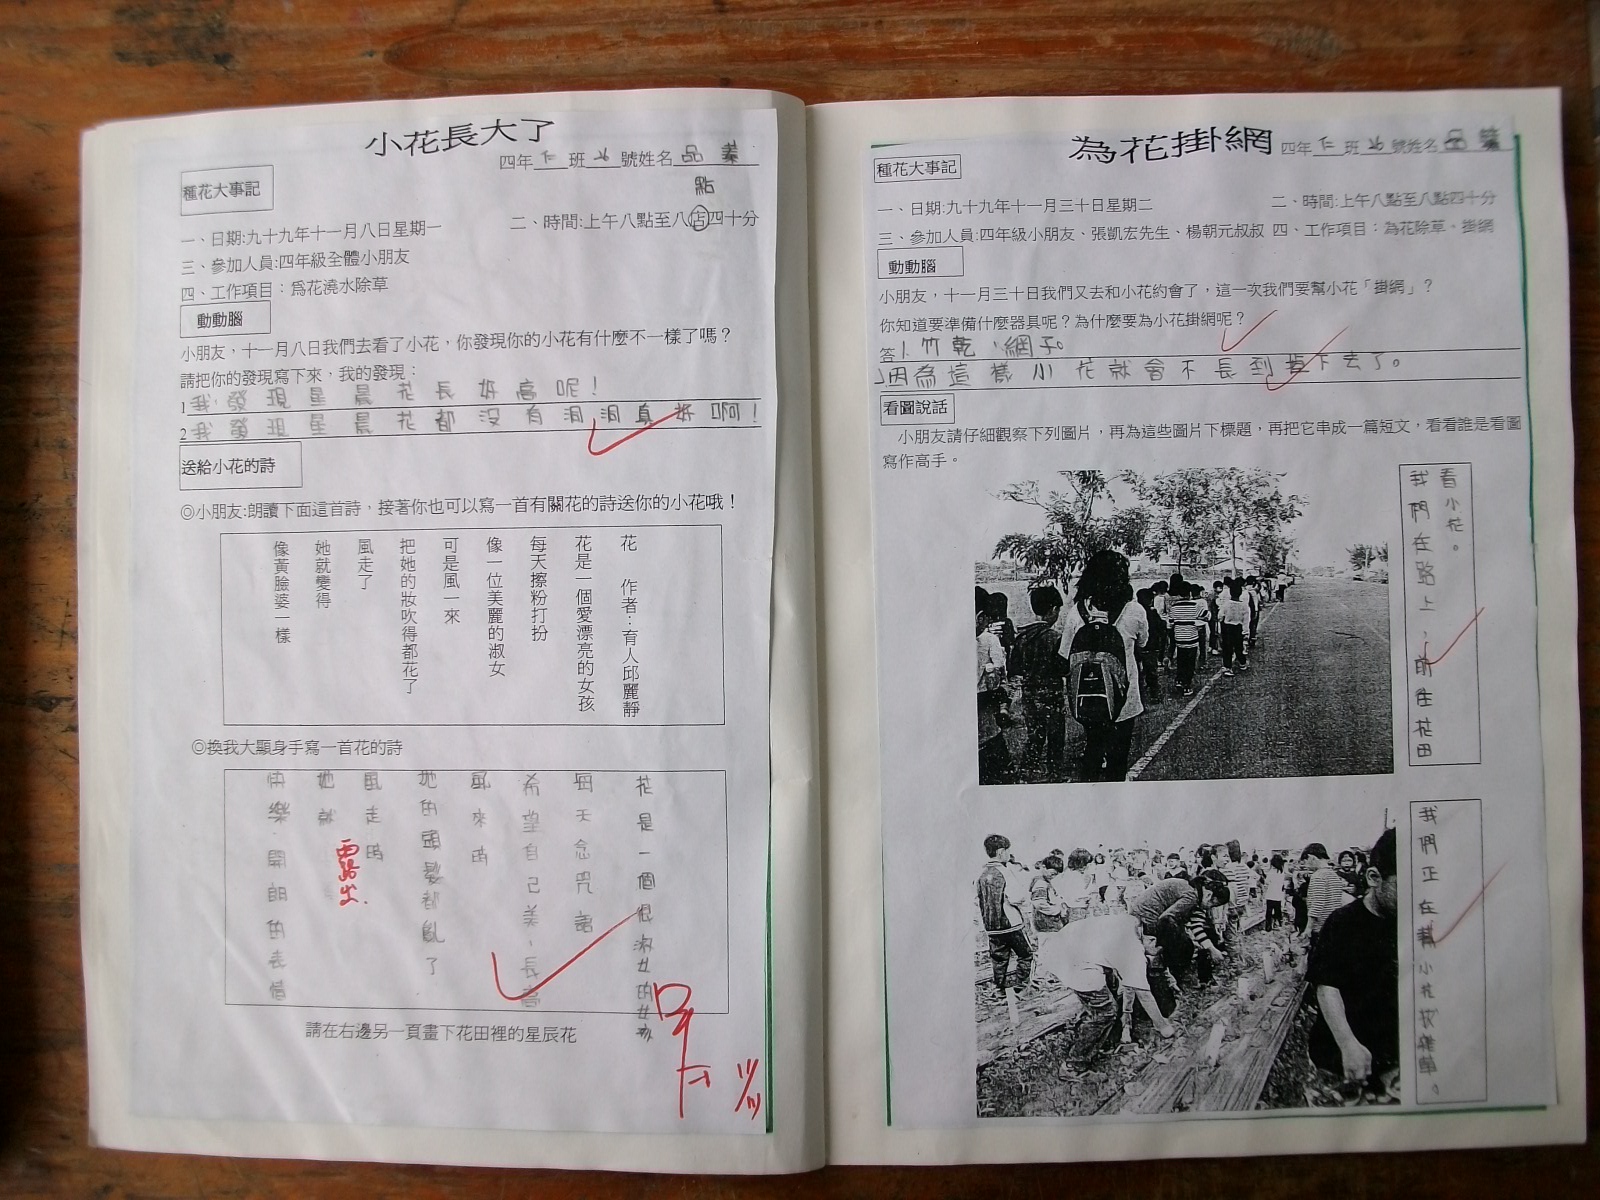 小花長大了
四年仁班26號姓名品蓁
種花大事記
點
一、日期:九十九年十一月八日星期一
二、時間:上午八點至八店四十分
三、參加人員:四年級全體小朋友
四、工作項目：為花澆水除草
動動腦
小朋友，十一月八日我們去看了小花，你發現你的小花有什麼不一樣了嗎？
請把你的發現寫下來，我的發現：
1 我發現星晨花長好高呢！
2 我發現星晨花都沒有洞洞真好啊！
送給小花的詩
◎小朋友:朗讀下面這首詩，接著你也可以寫一首有關花的詩送你的小花哦！
花　作者：育人邱麗靜
花是一個愛漂亮的女孩
每天擦粉打扮
像一位美麗的淑女
可是風一來
把她的妝吹得都花了
風走了
她就變得
像黃臉婆一樣
◎換我大顯身手寫一首花的詩
花是一個很淑女的女孩
每天念咒語
希望自己美、長高
風來時
她的頭髮都亂了
風走時
她就
露出
快樂開朗的表情
請在右邊另一頁畫下花田裡的星辰花
為花掛網
四年仁班26號姓名品蓁
種花大事記
一、日期:九十九年十一月三十日星期二
二、時間:上午八點至八點四十分
三、參加人員:四年級小朋友、張凱宏先生、楊朝元叔叔
四、工作項目：為花除草。掛網
動動腦
小朋友，十一月三十日我們又去和小花約會了，這一次我們要幫小花「掛網」？
你知道要準備什麼器具呢？為什麼要為小花掛網呢？
答1.竹乾、網子。
2因為這樣小花就會不長到掉下去了。
看圖說話
小朋友請仔細觀察下列圖片，再為這些圖片下標題，再把它串成一篇短文，看看誰是看圖
寫作高手。
我們在路上，前往花田
看小花。
我們正在幫小花拔雜草。